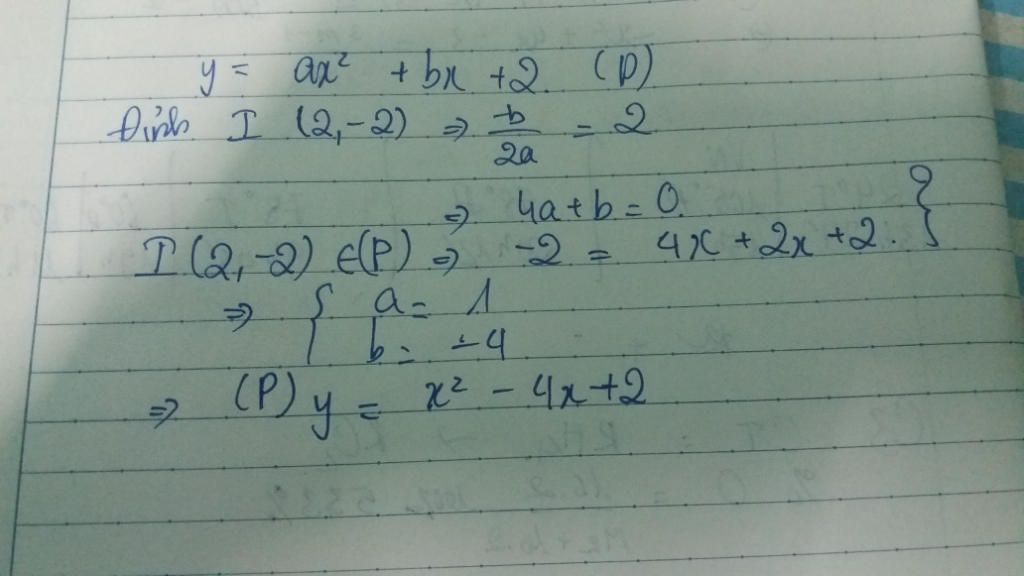 y = ax² + bx + 2. (P)
Đỉnh I (2,-2) ⇒ -b/2a = 2
⇒ 4a + b = 0.
I (2,-2) ∈ (P) ⇒ -2 = 4x + 2x + 2. }
⇒ { a = 1
b = -4
⇒ (P) y = x² - 4x + 2